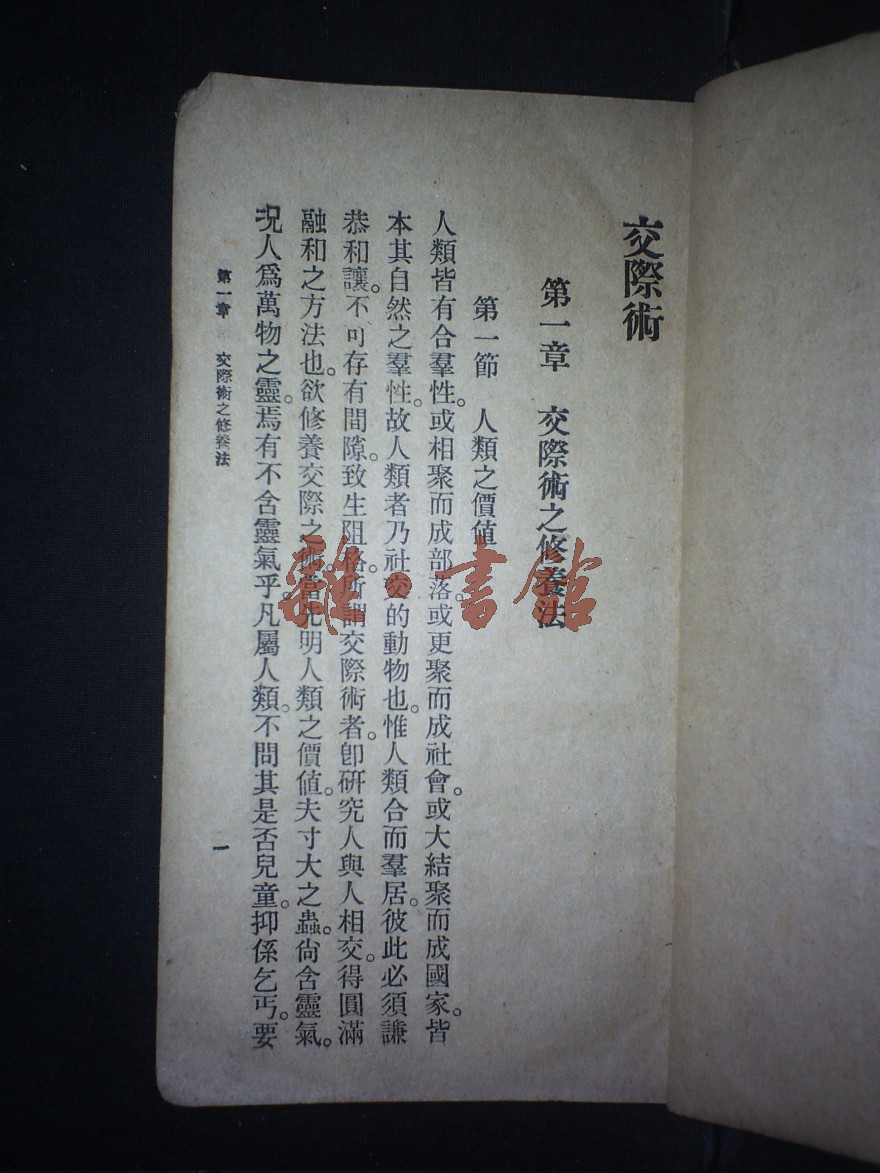 交際術
第一章　交際術之修養法
第一節　人類之價值
人類皆有合羣性。或相聚而成部落。或更聚而成社會。或大結聚而成國家。皆
本其自然之羣性。故人類者乃社交的動物也。惟人類合而羣居。彼此必須謙
恭和讓。不可存有間隙。致生阻格。所謂交際術者。卽硏究人與人相交。得圓滿
融和之方法也。欲修養交際之術。當先明人類之價値。夫寸大之蟲。尙含靈氣。
況人爲萬物之靈。焉有不含靈氣乎。凡屬人類。不問其是否兒童。抑係乞丐。要
第一章　交際術之修養法
一
雜·書館